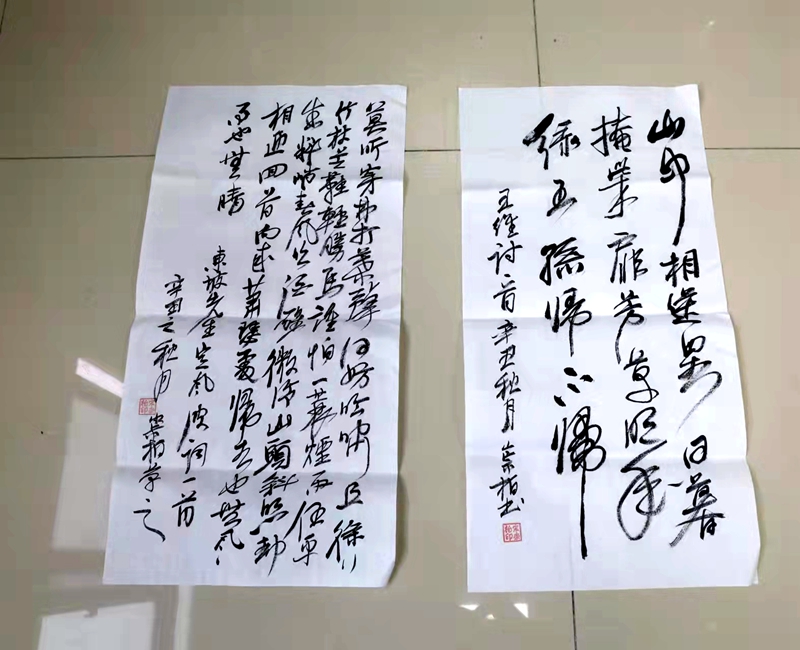 山中相送罢日暮
掩柴扉芳草明年
绿王孫归不归
王维诗一首辛丑秋月崇柏书
莫听穿林打葉聲何妨吟嘯且徐行
竹杖芒鞋輕勝馬誰怕一蓑煙雨任平
生料峭春风吹酒醒微冷山頭斜照却
相迎回首向来萧瑟處归去也無风
雨也無晴
東坡先生定风波词一首
辛丑之秋月崇柏草之